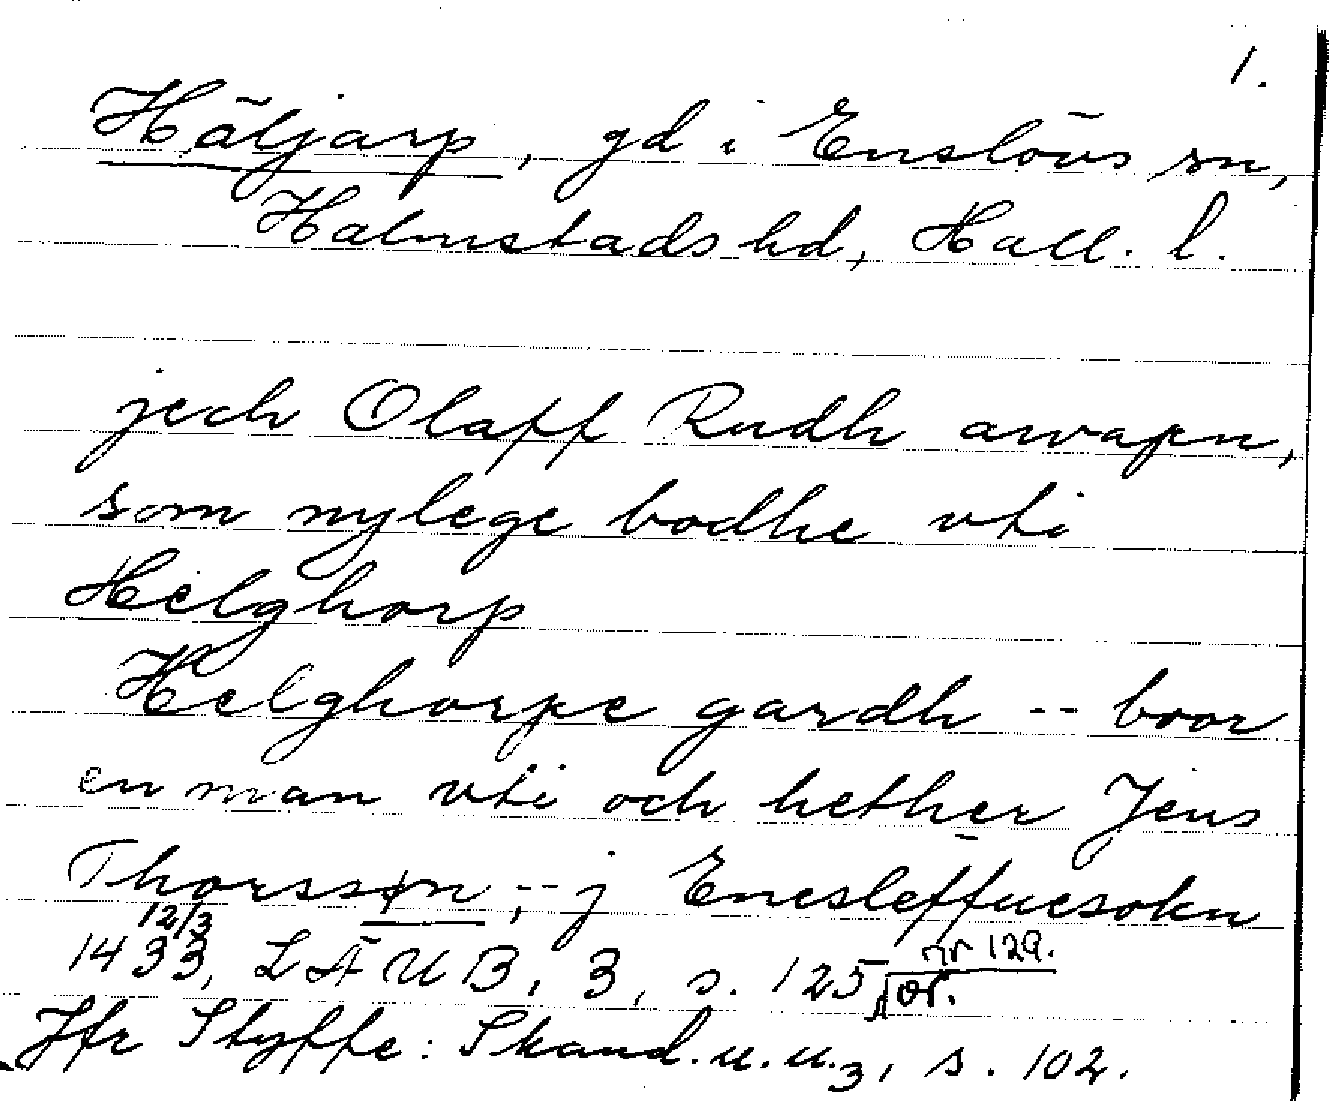 1.
Häljarp, gd i Enslövs sn,
Halmstads hd, Hall. l.
jech Olaff Rudh awapn,
som nylege bodhe vti
Helghorp
Helghorpe gardh -- boor
en man vti och hether Jens
Thorssøn, -- j Enesleffuesokn
12/3
1433, LÄUB, 3, s. 125 nr 129. or.
Jfr Styffe: Skand. u. u.3, s. 102.